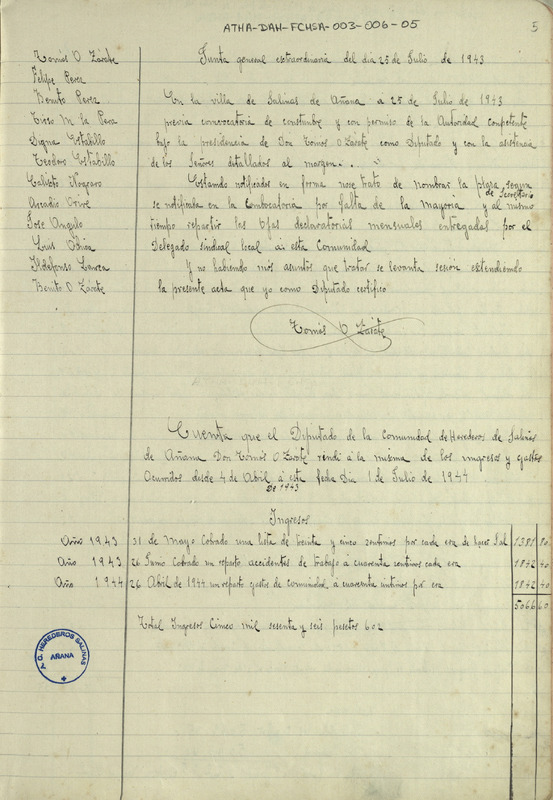 ATHA-DAH-FCHSA-003-006-05
5
Tomás O Zárate
Felipe Perea
Benito Perea
Tirso M la Pera
Digna Estabillo
Teodoro Estabillo
Calixto Nograro
Arcadio Orive
Jose Angulo
Luis
Ildefonso
Benito O Zárate
Junta general extraordinaria del dia 25 de Julio de 1943
En la villa de Salinas de Añana a 25 de Julio de 1943
previa convocatoria de costumbre y con permiso de la Autoridad competente
bajo la presidencia de Don Tomos O Zárate como Diputado y con la asistencia
de los Señores detallados al margen
Estando notificados en forma trato de nombrar la plaza segun
de Secretario
se notificada en la Convocatoria por falta de la mayoria y al mismo
tiempo repartir las Ojas declaratorias mensuales entregadas por el
Delegado sindical local a esta Comunidad
Y no habiendo más asuntos que tratar se levanta sesión extendiendo
la presente acta que yo como Diputado certifico
Tomás O Zárate
Cuenta que el Diputado de la Comunidad de Herederos de Salinas
de Añana Don Tomos O Zarate rindi a la misma de los ingresos y gastos
Ocurridos desde 4 de Abril á esta fecha Dia 1 de Julio de 1944
de 1943
Ingresos
Año 1943 31 de Mayo Cobrado una lista de treinta y cinco centimos por cada era de hacer Sal 1381 80
Año 1943 26 Junio Cobrado un reparto accidentes de trabajo a cuarenta centimos cada era 1842 40
Año 1944 26 Abril de 1944 un reparto gastos de comunidad á cuarenta centimos por era 1842 40
5066 60
Total Ingresos Cinco mil sesenta y seis pesetas 60
A. C. HEREDEROS SALINAS
AÑANA